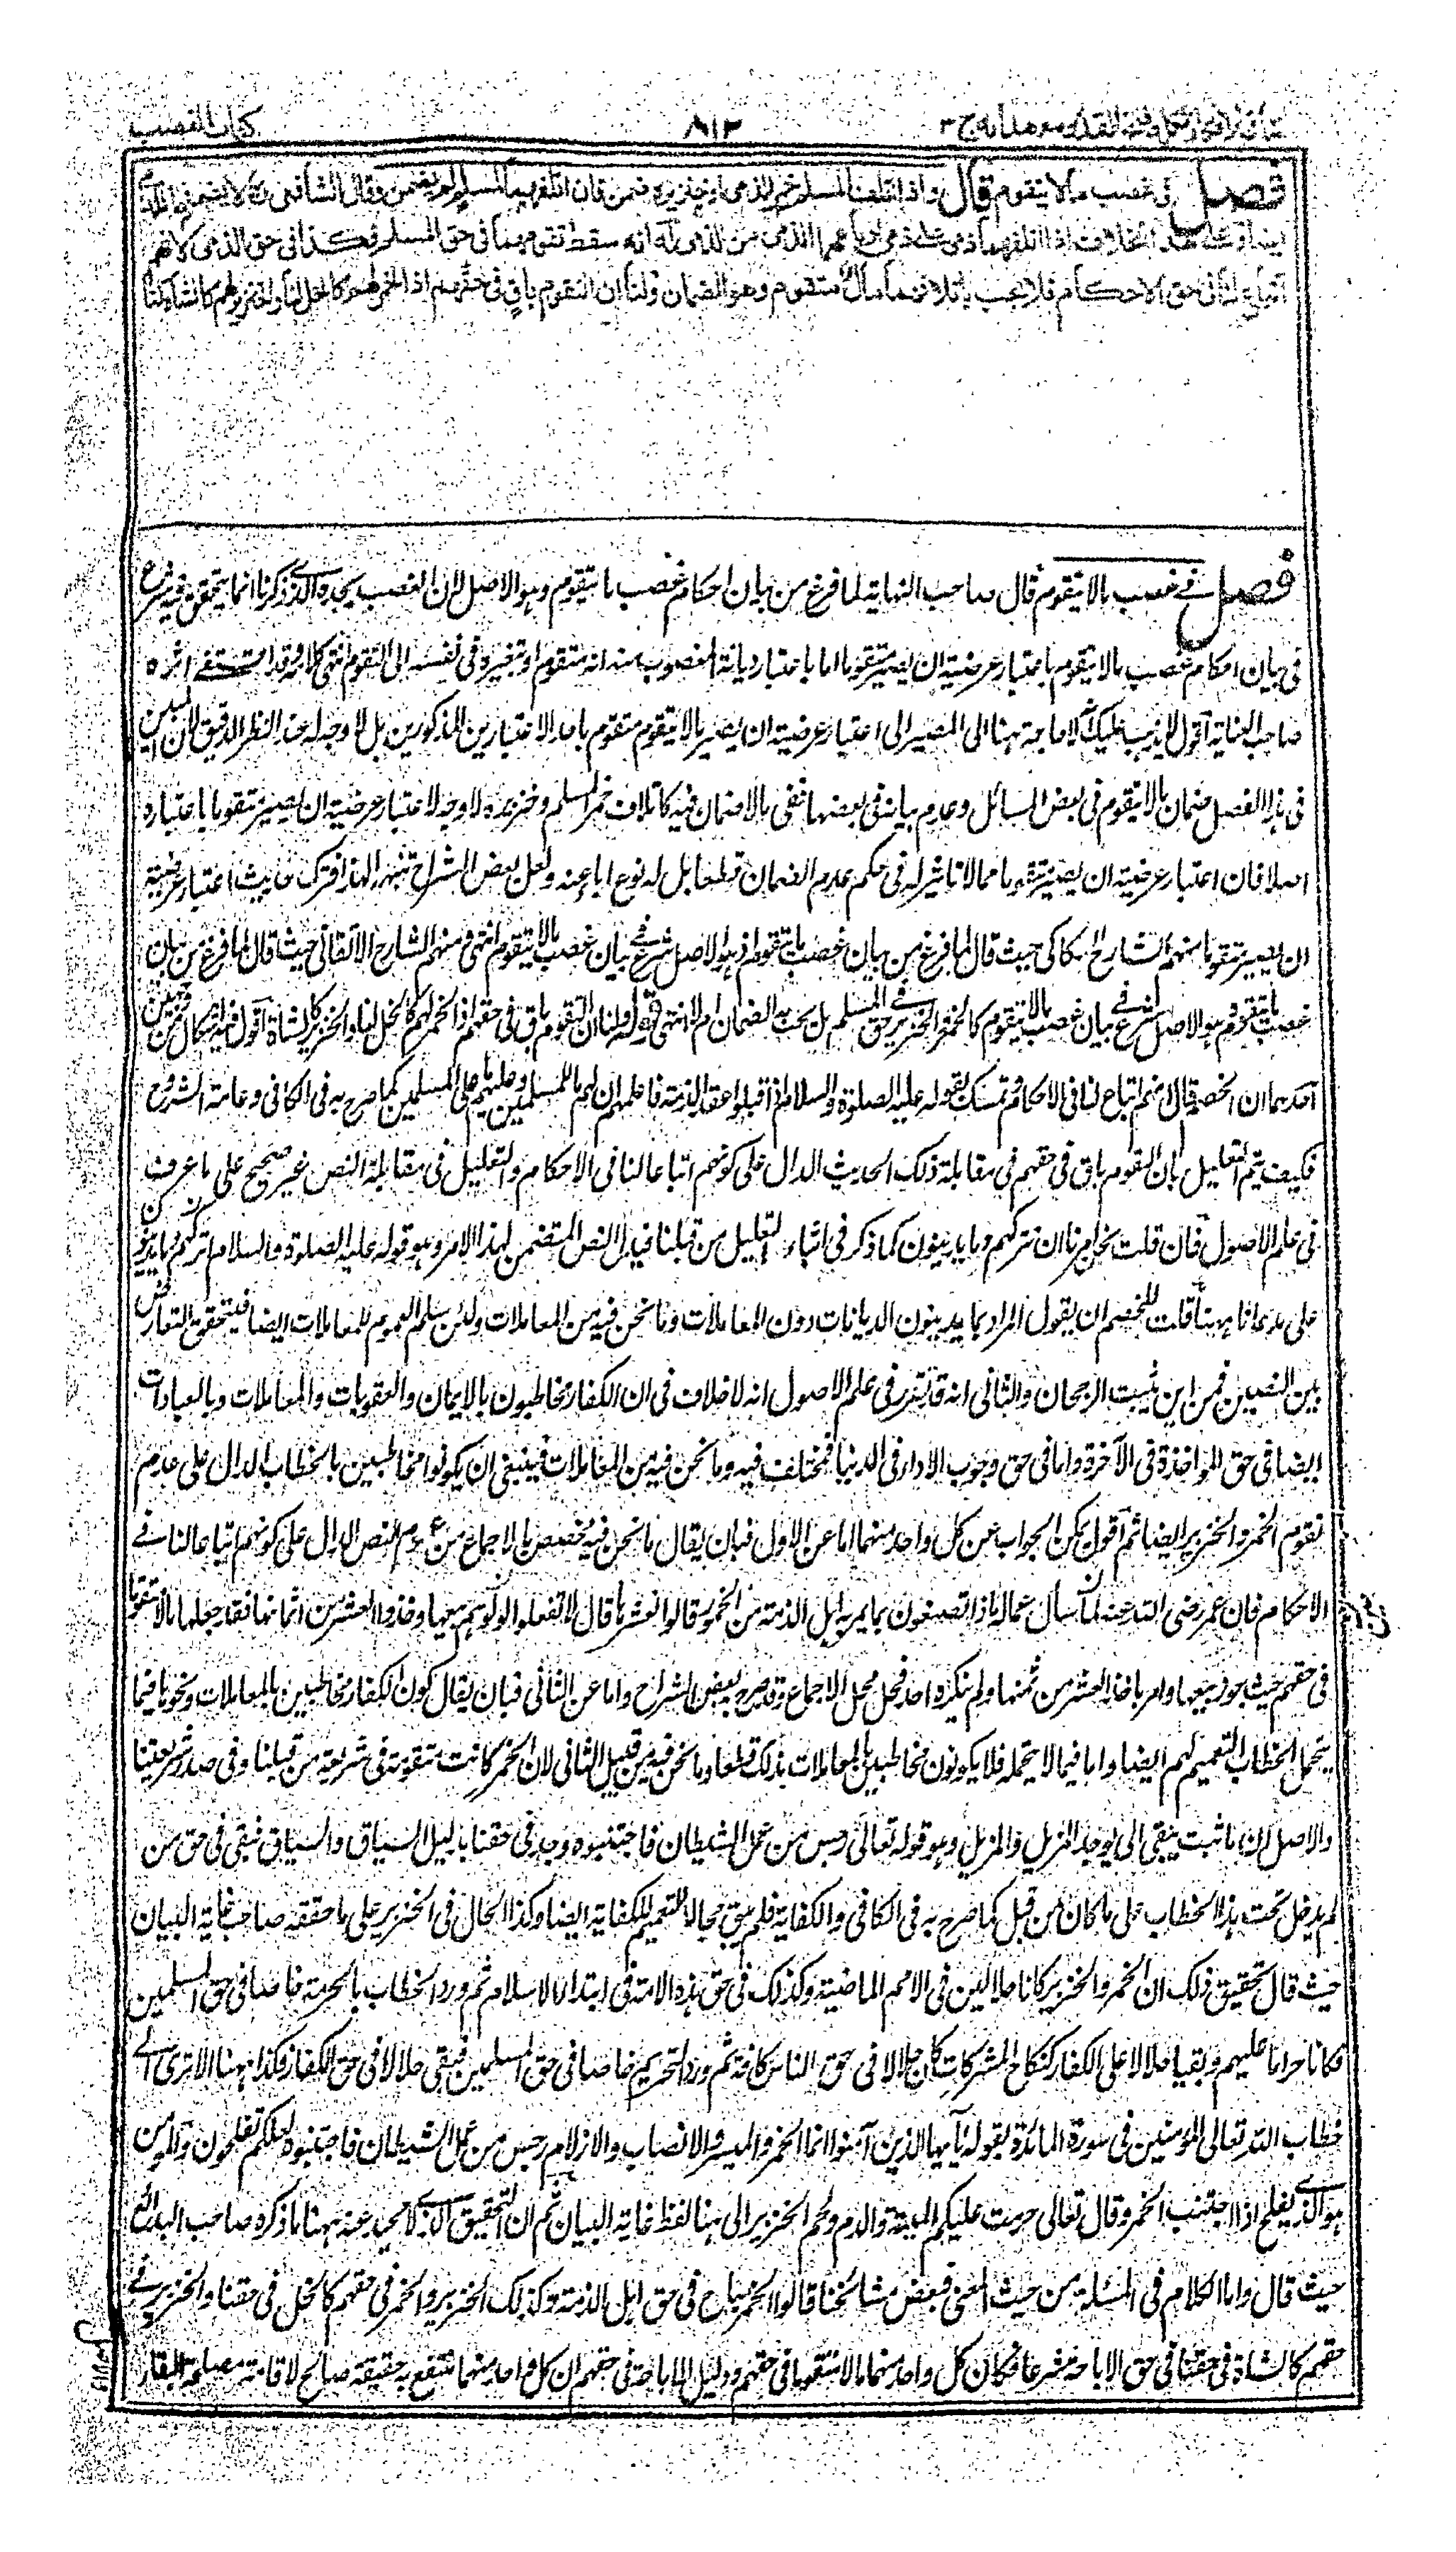 نتائج الافكار تكملة فتح القدير مع هدايه ج ٣
٨١٣
كتاب الغصب
فصل في غصب ما لا يتقوم قال واذا اتلف المسلم خمر الذمي او خنزيره ضمن فان اتلفهما لمسلم لم يضمن وقال الشافعي لا يضمنها للذمي
ايضا وعلى هذا الخلاف اذا اتلفهما ذمي على ذمي او باعهما الذمي من الذمي له انه سقط تقومهما في حق المسلم فكذا في حق الذمي لانهم
اتباع لنا في حق الاحكام فلا يجب باتلافهما مال متقوم وهو الضمان ولنا ان التقوم باق في حقهم اذ الخمر لهم كالخل لنا والخنزير لهم كالشاة لنا
فصل في غصب ما لا يتقوم قال صاحب النهاية لما فرغ من بيان احكام غصب ما يتقوم وهو الاصل لان الغصب بحده الذي ذكرنا انما يتحقق فيه شرع
في بيان احكام غصب ما لا يتقوم باعتبار عرضية ان يصير متقوما اما باعتبار ديانة المغصوب منه انه متقوم او بتغيره في نفسه الى التقوم انتهى كلامه وقد اقتفى اثره
صاحب العناية اقول لا يذهب عليك ان لا حاجة ههنا الى المصير الى اعتبار عرضية ان يصير ما لا يتقوم متقوم باحد الاعتبارين المذكورين بل لا وجه له عند النظر الدقيق لان المبين
في هذا الفصل ضمان ما لا يتقوم في بعض المسائل وعدم بيانه في بعضها ففي ما لا ضمان فيه كاتلاف خمر المسلم وخنزيره لا وجه لاعتبار عرضية ان يصير متقوما باعتباره
اصلا فان اعتبار عرضية ان يصير متقوما مما لا تاثير له في حكم عدم الضمان قطعا بل له نوع اباء عنه ولعل بعض الشراح تنبه لهذا فترك حديث اعتبار عرضية
ان يصير متقوما منهم الشارح الكاكي حيث قال لما فرغ من بيان غصب ما يتقوم اذ هو الاصل شرع في بيان غصب ما لا يتقوم انتهى ومنهم الشارح الاتقاني حيث قال لما فرغ من بيان
غصب ما يتقوم وهو الاصل شرع في بيان غصب ما لا يتقوم كالخمر والخنزير في حق المسلم هل يجب به الضمان ام لا انتهى قوله ولنا ان التقوم باق في حقهم اذ الخمر لهم كالخل لنا والخنزير كالشاة اقول فيه اشكال من وجهين
احدهما ان الخصم قال انهم اتباع لنا في الاحكام وتمسك بقوله عليه الصلوة والسلام اذا قبلوا عقد الذمة فاعلمهم ان لهم ما للمسلمين وعليهم ما على المسلمين كما صرح به في الكافي وعامة الشروح
فكيف يتم التعليل بان التقوم باق في حقهم في مقابلة ذلك الحديث الدال على كونهم اتباعا لنا في الاحكام والتعليل في مقابلة النص غير صحيح على ما عرف
في علم الاصول فان قلت نحن امرنا ان نتركهم وما يدينون كما ذكر في اثناء التعليل من قبلنا فيدل النص المتضمن لهذا الامر وهو قوله عليه الصلوة والسلام اتركوهم وما يدينون
على مدعانا ههنا قلت للخصم ان يقول المراد بما يدينون الديانات دون المعاملات وما نحن فيه من المعاملات ولئن سلم العموم للمعاملات ايضا فيتحقق التعارض
بين النصين فمن اين يثبت الرجحان والثاني انه قد تقرر في علم الاصول انه لا خلاف في ان الكفار مخاطبون بالايمان والعقوبات والمعاملات وبالعبادات
ايضا في حق المؤاخذة في الآخرة واما في حق وجوب الاداء في الدنيا فمختلف فيه وما نحن فيه من المعاملات فينبغي ان يكونوا مخاطبين بالخطاب الدال على عدم
تقوم الخمر والخنزير ايضا ثم اقول يمكن الجواب عن كل واحد منهما اما عن الاول فبان يقال ما نحن فيه مخصص بالاجماع من عموم النص الدال على كونهم اتباعا لنا في
الاحكام فان عمر رضى الله عنه لما سأل عماله ماذا تصنعون بما يمر به اهل الذمة من الخمور فقالوا نعشرها قال لا تفعلوا ولوهم بيعها وخذوا العشر من اثمانها فقد جعلها مالا متقوما
في حقهم حيث جوز بيعها وامر باخذ العشر من ثمنها ولم ينكره احد فحل محل الاجماع وقد صرح به بعض الشراح واما عن الثاني فبان يقال كون الكفار مخاطبين بالمعاملات ونحوها فيما
يتحمل الخطاب التعميم لهم ايضا واما فيما لا يتحمله فلا يكونون مخاطبين بالمعاملات بذلك قطعا وما نحن فيه من قبيل الثاني لان الخمر كانت متقومة في شريعة من قبلنا وفي صدر شريعتنا
والاصل ان ما ثبت يبقى الى ان يوجد المزيل والمزيل وهو قوله تعالى رجس من عمل الشيطان فاجتنبوه وجد في حقنا بدليل السياق والسباق فبقي في حق من
لم يدخل تحت هذا الخطاب على ما كان من قبل كما صرح به في الكافي والكفاية فلم يبق مجالا للتعميم للكفاية ايضا وكذا الحال في الخنزير على ما حققه صاحب غاية البيان
حيث قال تحقيق ذلك ان الخمر والخنزير كانا حلالين في الامم الماضية وكذلك في حق هذه الامة في ابتداء الاسلام ثم ورد الخطاب بالحرمة خاصا في حق المسلمين
فكانا حراما عليهم وبقيا حلالا على الكفار كنكاح المشركات كان حلالا في حق الناس كافة ثم ورد التحريم خاصا في حق المسلمين فبقي حلالا في حق الكفار وكذا ههنا الا ترى الى
خطاب الله تعالى المؤمنين في سورة المائدة بقوله يا ايها الذين آمنوا انما الخمر والميسر والانصاب والازلام رجس من عمل الشيطان فاجتنبوه لعلكم تفلحون والمؤمن
هو الذي يفلح اذا اجتنب الخمر وقال تعالى حرمت عليكم الميتة والدم ولحم الخنزير الى هنا لفظ غاية البيان ثم ان التحقيق الذي لا محيد عنه ههنا ما ذكره صاحب البدائع
حيث قال واما الكلام في المسئلة من حيث المعنى فبعض مشائخنا قالوا الخمر مباح في حق اهل الذمة وكذلك الخنزير والخمر في حقهم كالخل في حقنا والخنزير في
حقهم كالشاة في حقنا في حق الاباحة شرعا فكان كل واحد منهما مالا متقوما في حقهم ودليل الاباحة في حقهم ان كل واحد منهما منتفع به حقيقة صالح لاقامة مصلحة البقاء